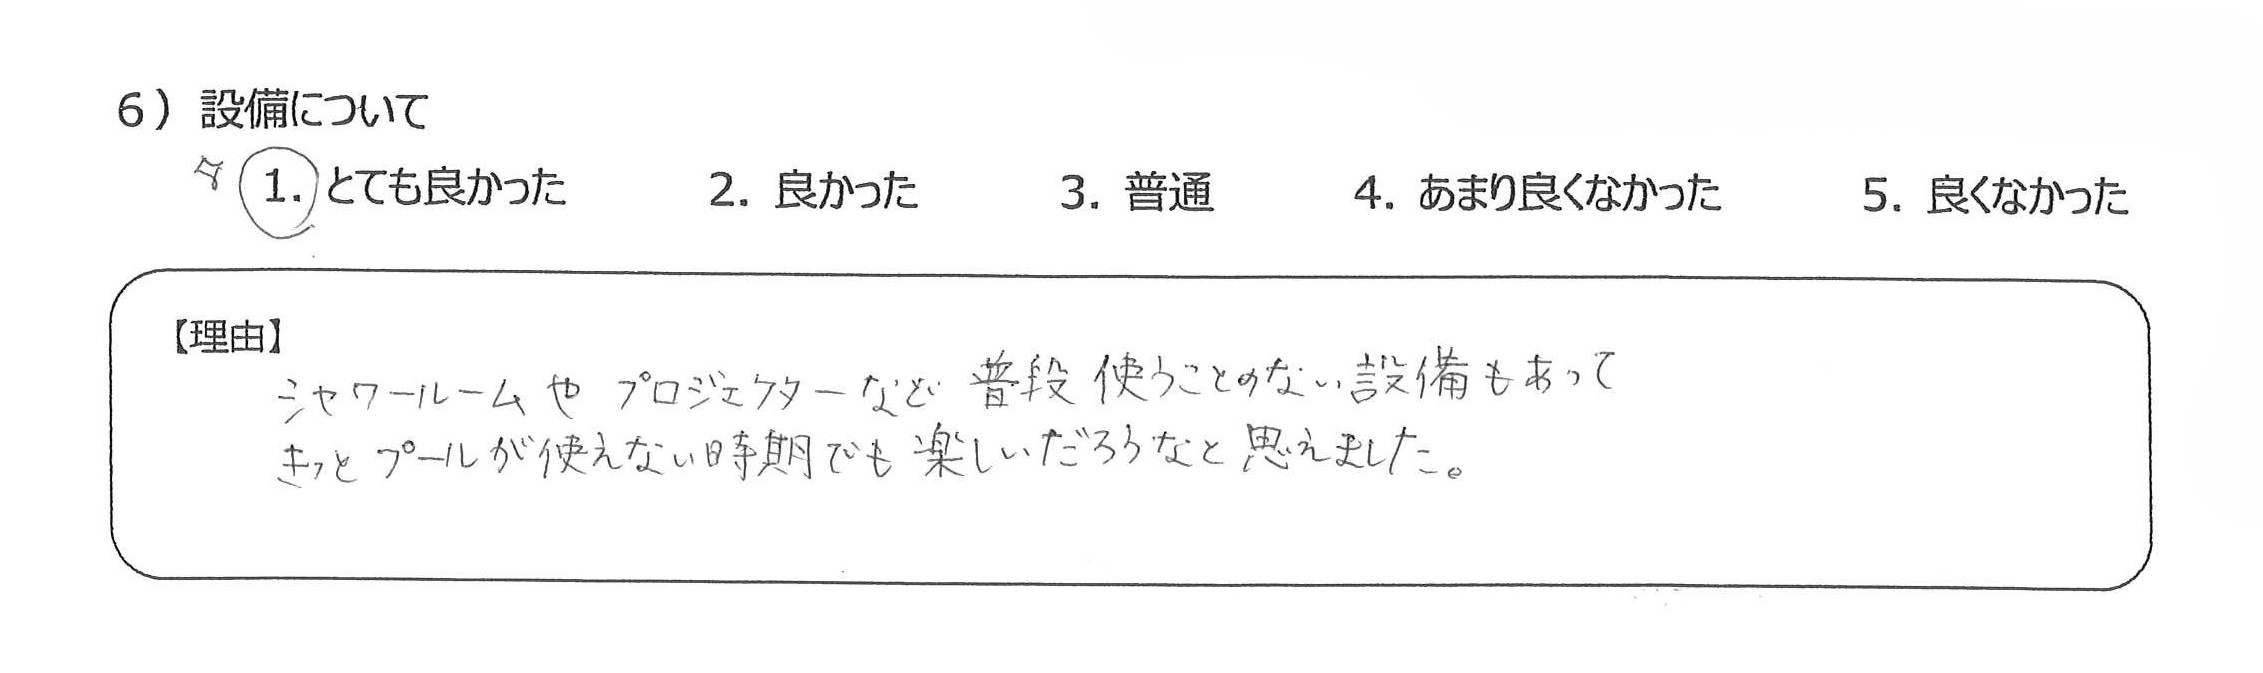 6）設備について
☆ 1. とても良かった 2. 良かった 3. 普通 4. あまり良くなかった 5. 良くなかった
【理由】
シャワールームや プロジェクターなど 普段 使うことのない設備もあって
きっと プールが使えない時期でも 楽しいだろうなと 思えました。